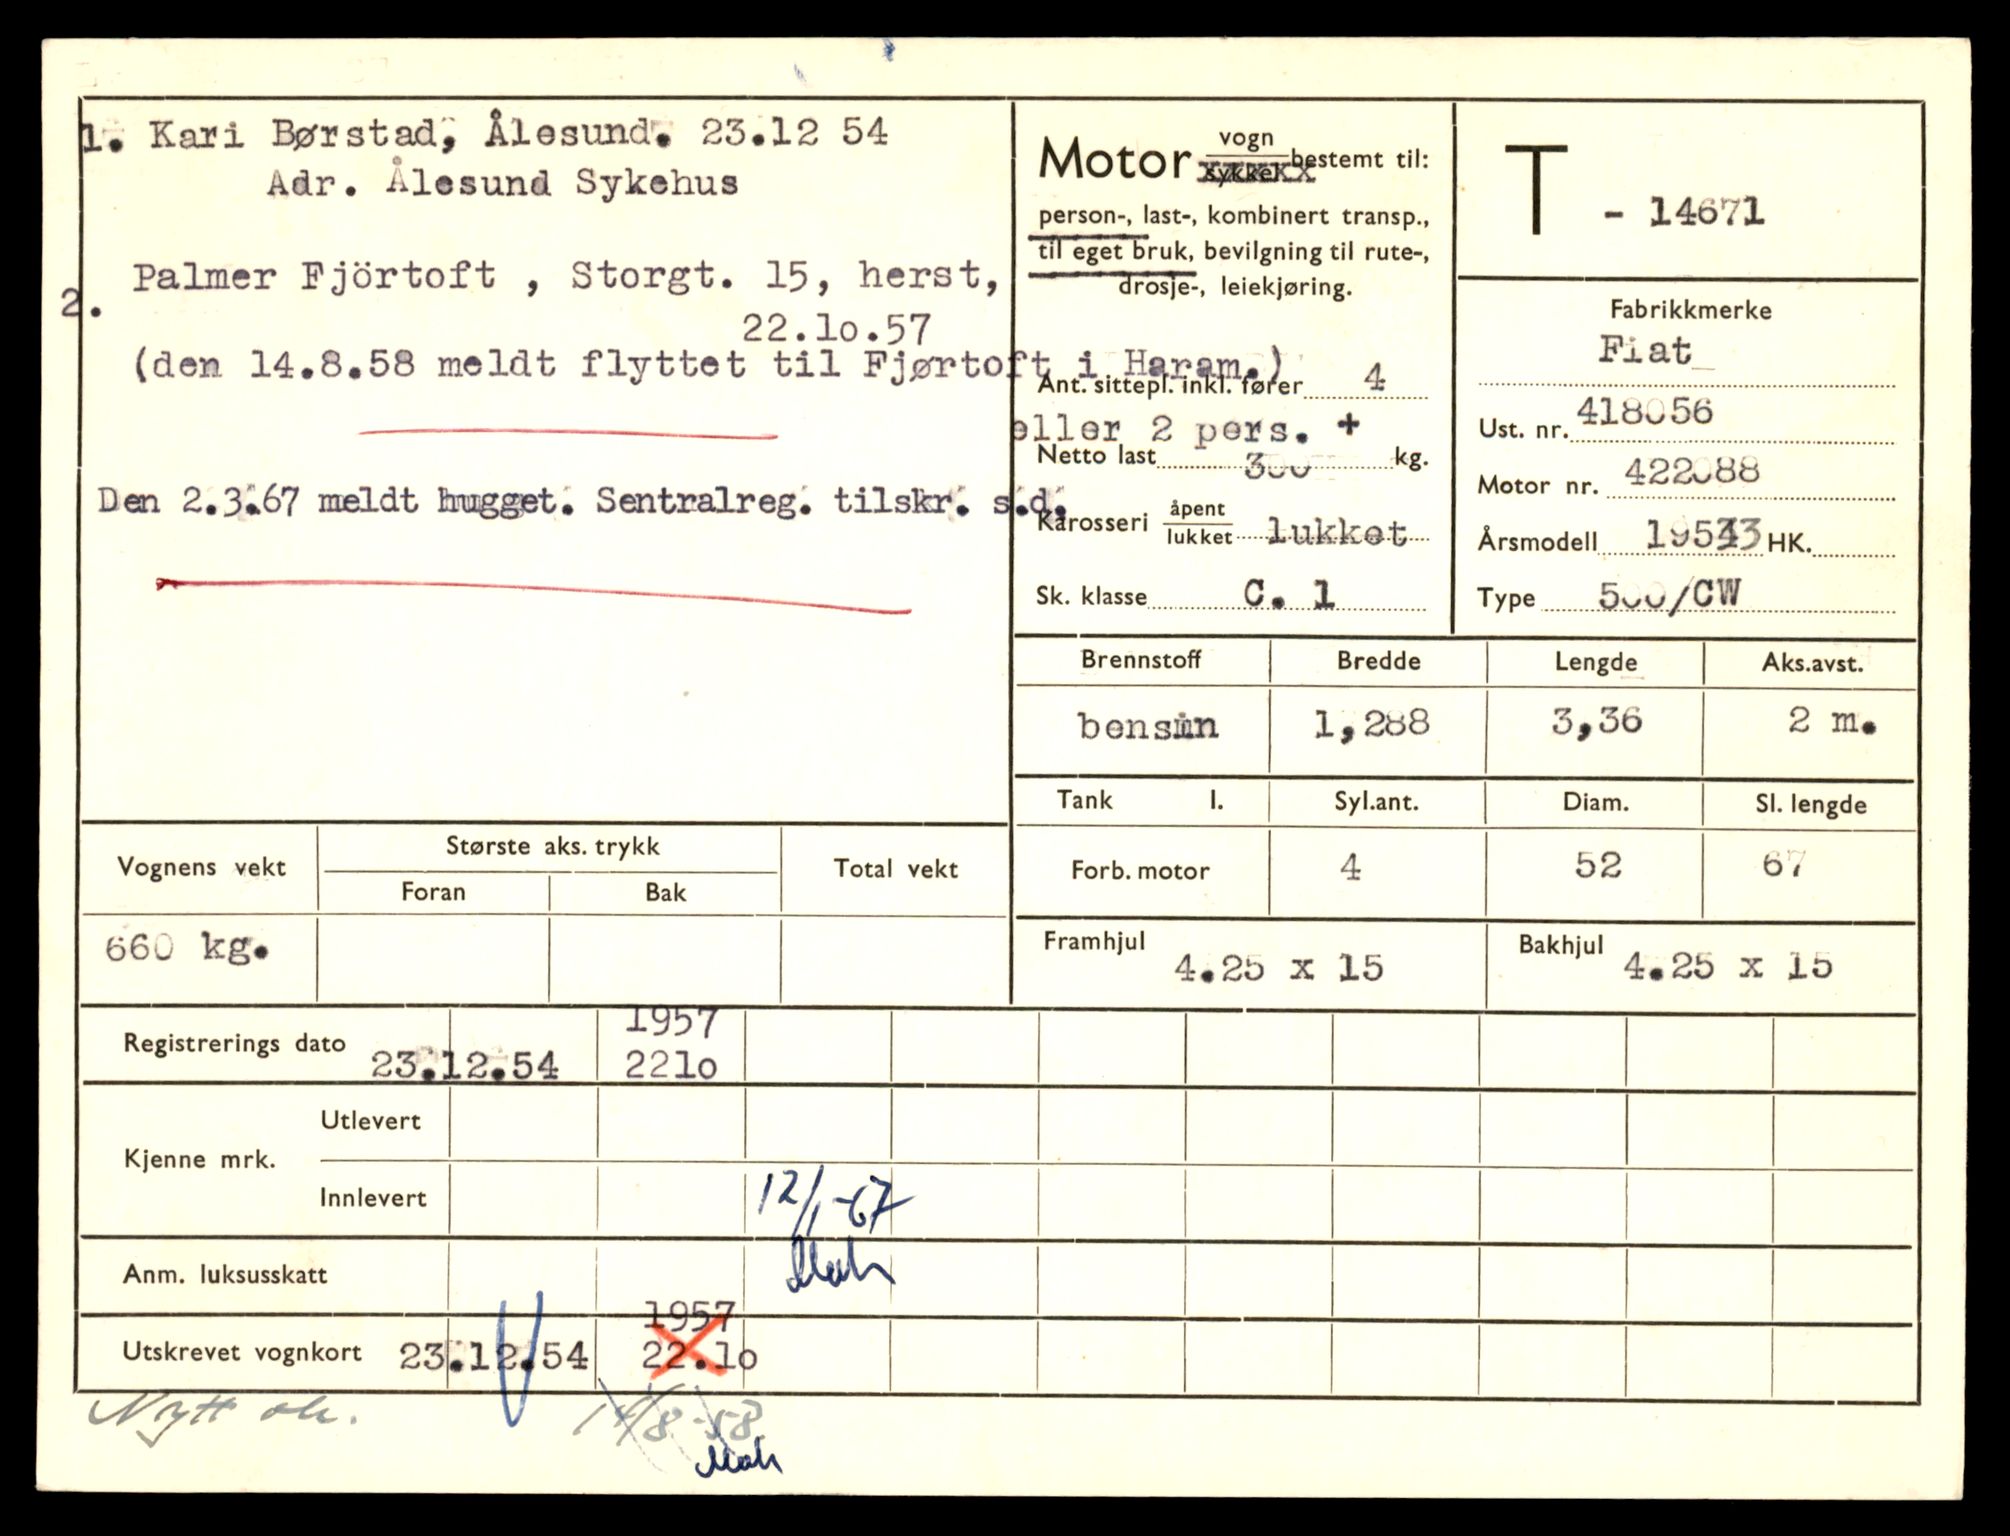 1. Kari Børstad, Ålesund. 23.12 54
Adr. Ålesund Sykehus
2. Palmer Fjörtoft , Storgt. 15, herst,
22.lo.57
(den 14.8.58 meldt flyttet til Fjørtoft i Haram.)
Den 2.3.67 meldt hugget. Sentralreg. tilskr. s.d.
Motor vogn
sykkel bestemt til:
person-, last-, kombinert transp.,
til eget bruk, bevilgning til rute-,
drosje-, leiekjøring.
Ant. sittepl. inkl. fører 4
eller 2 pers. +
Netto last 300 kg.
Karosseri åpent
lukket lukket
Sk. klasse C. 1
T - 14671
Fabrikkmerke
Fiat
Ust. nr. 418056
Motor nr. 422088
Årsmodell 1953 HK.
Type 500/CW
Brennstoff Bredde Lengde Aks.avst.
bensin 1,288 3,36 2 m.
Tank l. Syl.ant. Diam. Sl. lengde
Forb. motor 4 52 67
Framhjul 4.25 x 15 Bakhjul 4.25 x 15
Vognens vekt Største aks. trykk Total vekt
Foran Bak
660 kg.
1957
Registrerings dato 23.12.54 22lo
Utlevert
Kjenne mrk.
Innlevert 12/1-67
Anm. luksusskatt
1957
Utskrevet vognkort 23.12.54 22.lo
Nytt 14/8-58